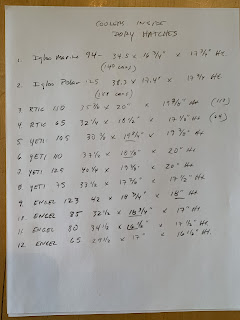 COOLERS INSIDE
DORY HATCHES
1 Igloo Marine 94 - 34.5 x 16 3/4" x 17 3/4" Ht
(140 cans)
2. Igloo Polar 125 38.3 x 17.4" x 17 3/4 Ht
3 RTIC 110 x 20" x 19 3/8" Ht
4 RTIC 65 32 1/4 x 18 1/2" x 17 1/4 Ht
5 YETI 105 30 3/8 x 19 3/4" x 19 3/8" Ht
6 YETI 110 x 18 1/8" x 20" Ht
7 YETI 125 40 1/4 x 20" Ht
8 YETI 75 33 1/8 x 17 3/8" x 17 1/2" Ht
9 ENGEL 123 42 x 18 3/4" x 18" Ht
10 ENGEL 85 32 1/2 x 18 3/4" x 17" Ht
11 ENGEL 80 34 1/2 x x 17 1/2 Ht.
12 ENGEL 65 29 1/2 x 17" x 16 1/2" Ht.